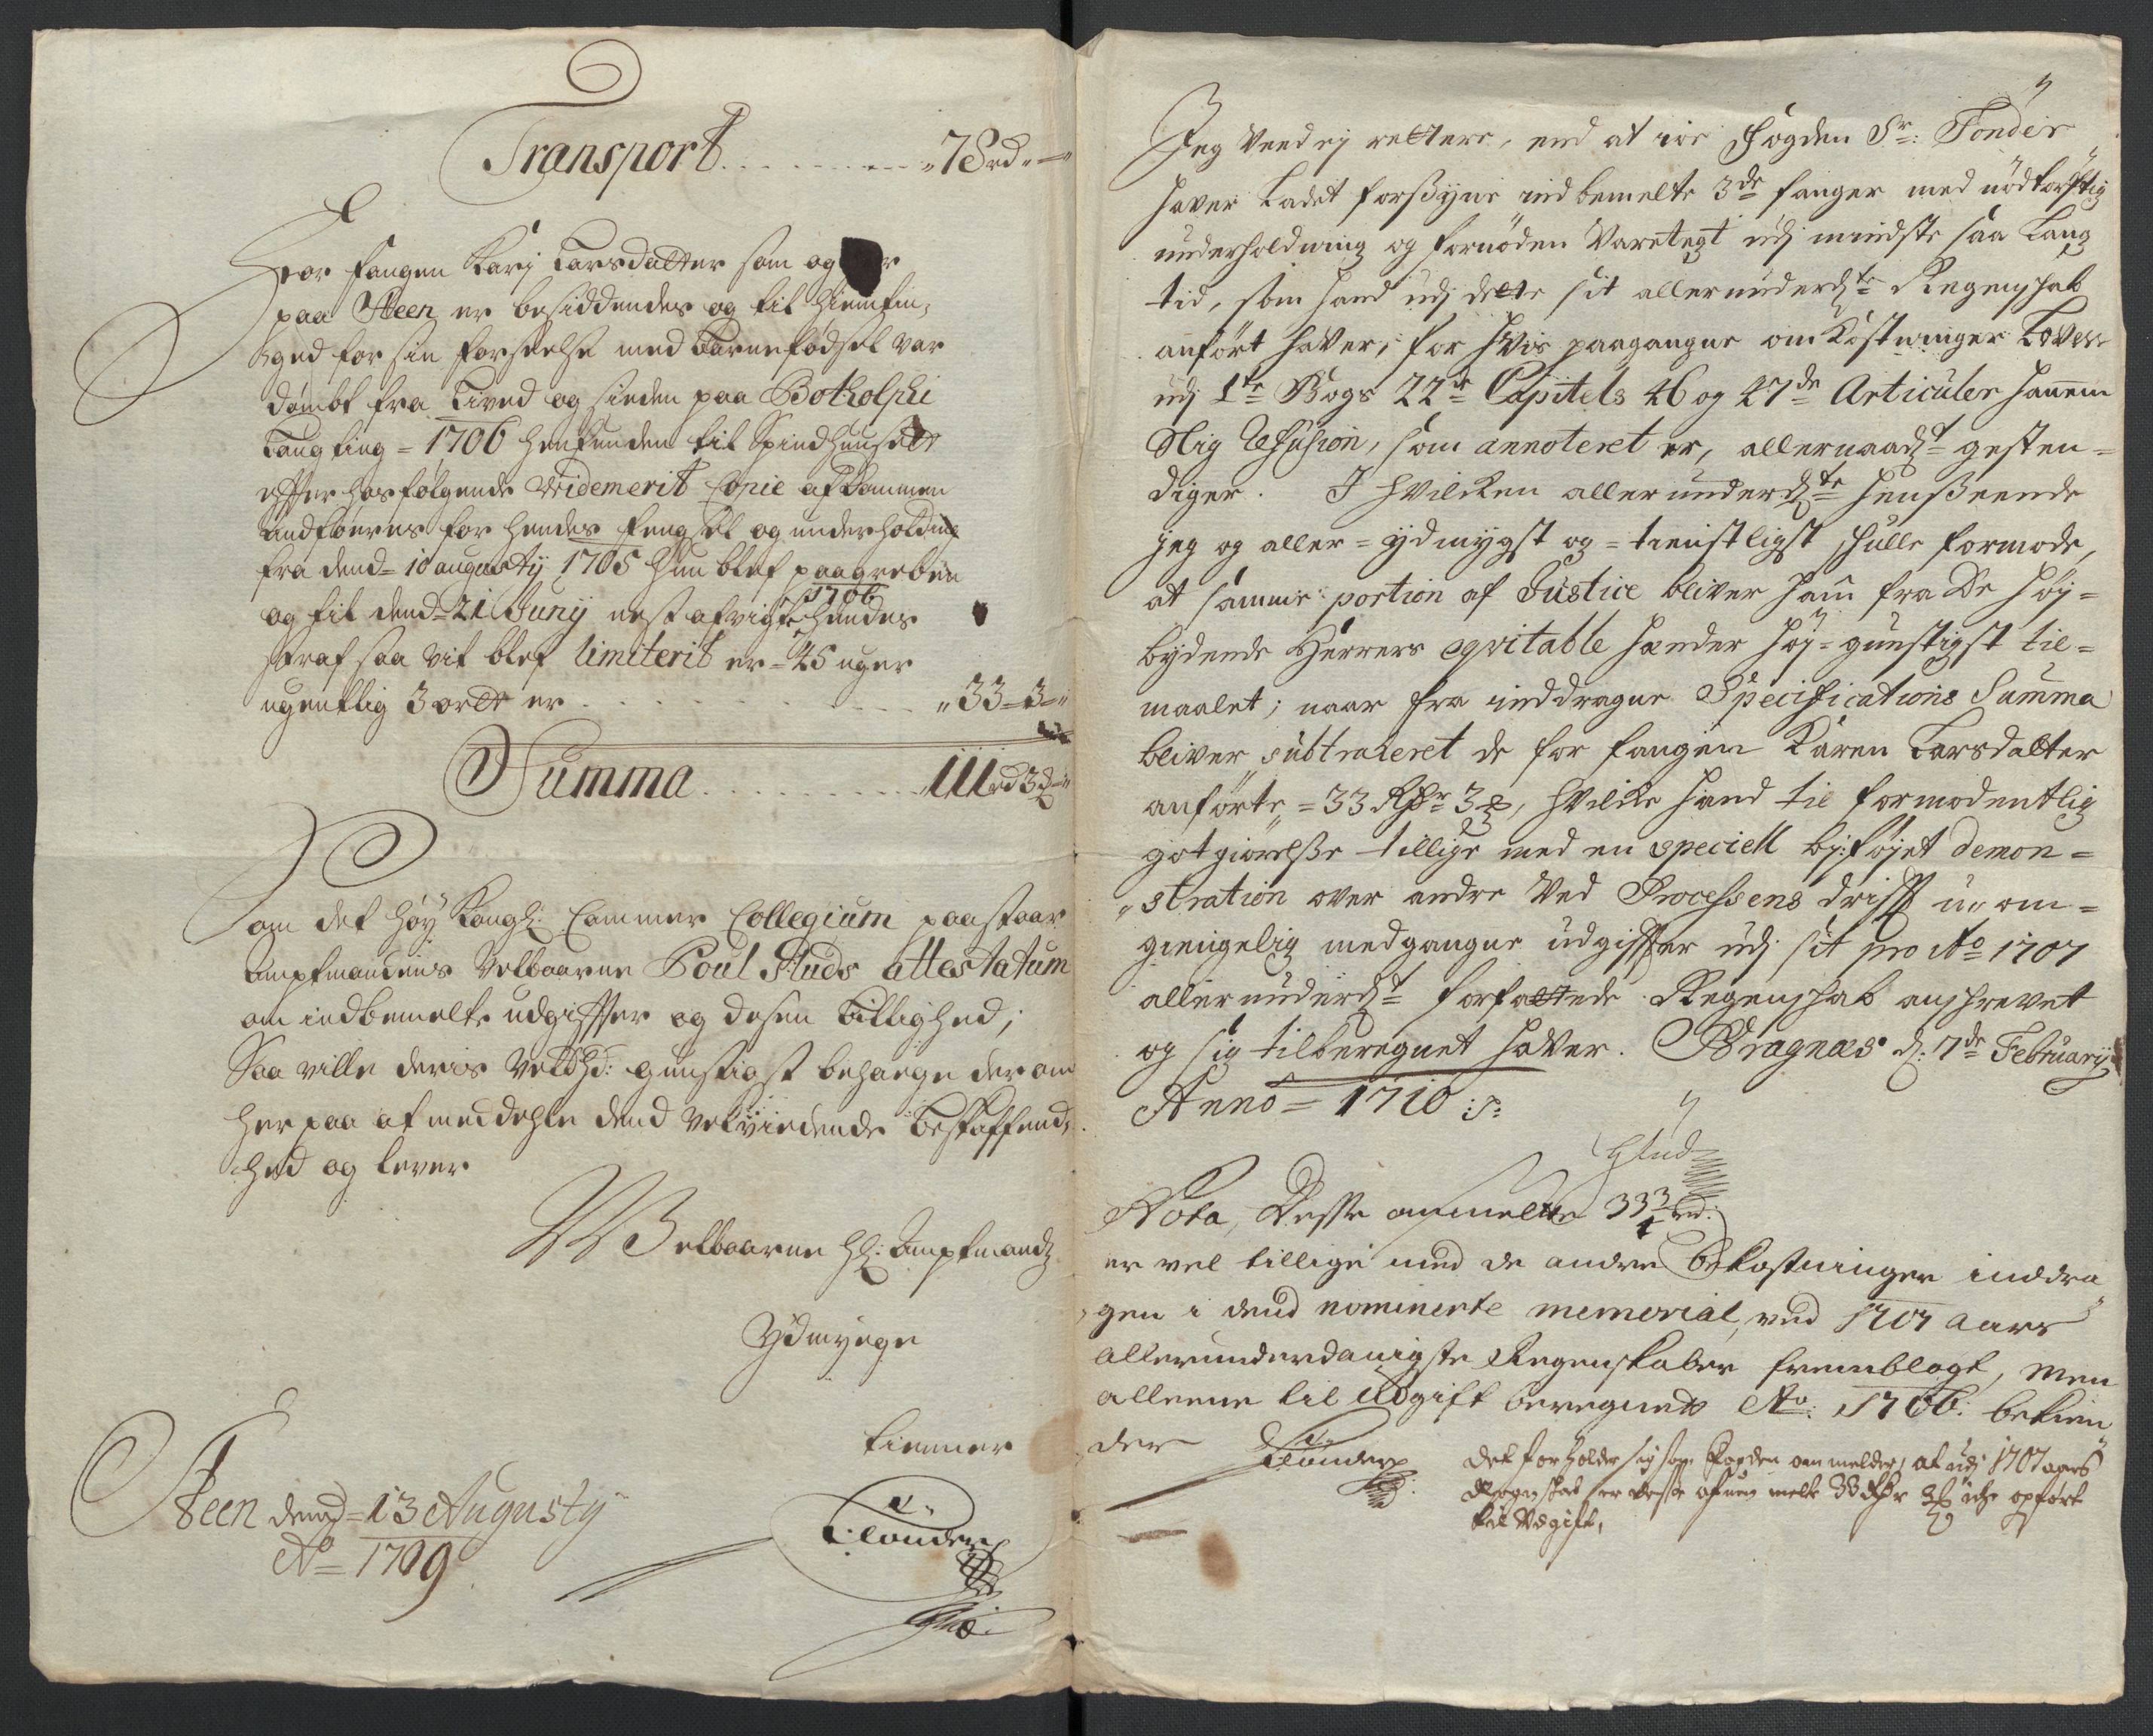 Transport . . . . . . . . „78 rd „—„
For fangen Kari Larsdatter som og
paa Steen er besiddendes og til hiemtin-
ged for sin forseelse med barnefødsel var
dømbt fra Lived og sieden paa Botholphi
Laugting = 1706 henfunden til Spindhuuset
efter hosfølgende Videmerit Copie af Dommen
andføeres for hendes fengsel og underholding
fra dend = 10 augusty 1705 hun blef paagreben
og til dend = 21 Juny nest afvigte 1706 hendes
straf saa vit blef limiterit er = 45 uger
ugentlig 3 ort er . . . . . . . . „33 = 3 = „
Summa . . . . . . . . „111 rd 3 „
Som det høy Kongl: Cammer Collegium paastaar
Amptmandens Velbaarne Poul Gluds attestatum
om indbemelte udgiffter og desen billighed;
Saa ville deris Velbhd: gunstigst behaege der om
her paa at meddehle dend velviedende beskaffend-
hed og lever
Welbaarne Hr: Amptmandz
Ydmyege
tienner
Steen dend = 13 Augusty
Ao = 1709
Tonder
Jeg veed ej rettere, end at jo Fogden Sr: Tonder
haver Ladet forsyne indbemelte 3de fanger med nødtørftig
underholdning og fornøden Varetegt udj mindste saa Lang
tid, som hand udj dette sit allerunderdste Regenskab
anført haver; for hvis paagangne omkostninger Loven
udj 1te Bogs 22de Capitels 46 og 47de Articuler hannem
Slig refusion, som annoteret er, allernaadst gesten-
diger. I hvilken allerunderdste henseende
jeg og aller = ydmygst og = tienstligst skulle formode,
at samme portion af Justice bliver ham fra de høj-
bydende Herrers eqvitable hænder høj = gunstigst til-
maalet; naar fra inddragne Specifications Summa
bliver subtraheret de for fangen Karen Larsdatter
anførte = 33 Rdr 3, hvilke hand til formodentlig
godtgiørelse tillige med en speciell bj:føjet demon-
stration over andre ved Processens drifft u-om-
giengelig medgangne udgiffter udj sit pro Ao 1707
allerunderdt forfattede Regenskab anskrevet
og sig tilberegnet haver. Bragnæs d: 7de February
Anno = 1710
Glud
Nota, Desse anmeldte 33 3/4 rd:
er vel tillige med de andre bekostninger inddra-
gen i dend nominerte memorial, ved 1707 aars
allerunderdanigste Regenskaber fremblagt, men
alleene til udgift beregnet Ao: 1706: bekien-
der Tonder
Det forholder sig som Fogden om melder, at udj 1707 aars
Regenskab er desse ofuen melte 33 Rdr 3 iche opført
til udgift,